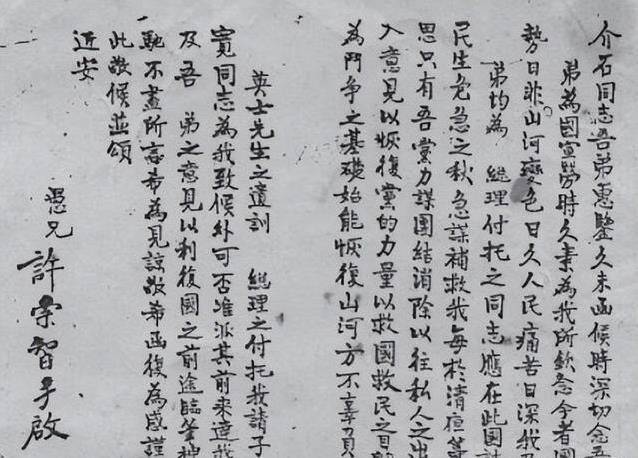 介石同志吾弟惠鑒久未函候時深切念吾
弟為國宣勞時久素為我所欽念今者國
勢日非山河變色日久人民痛苦日深我
弟均為 總理付托之同志應在此國
民生危急之秋急謀補救我每於清
思只有吾黨力謀團結消除以往私人之出
入意見以恢復黨的力量以救國救民之目
為鬥爭之基礎始能恢復山河方不辜負
英士先生之遺訓 總理之付托我請子
寬同志為我致候外可否准派其前來達我
及吾 弟之意見以利復國之前途臨筆神
馳不盡所言希為見諒敬希函復為感謹
此敬候並頌
近安
愚兄 許崇智手啟